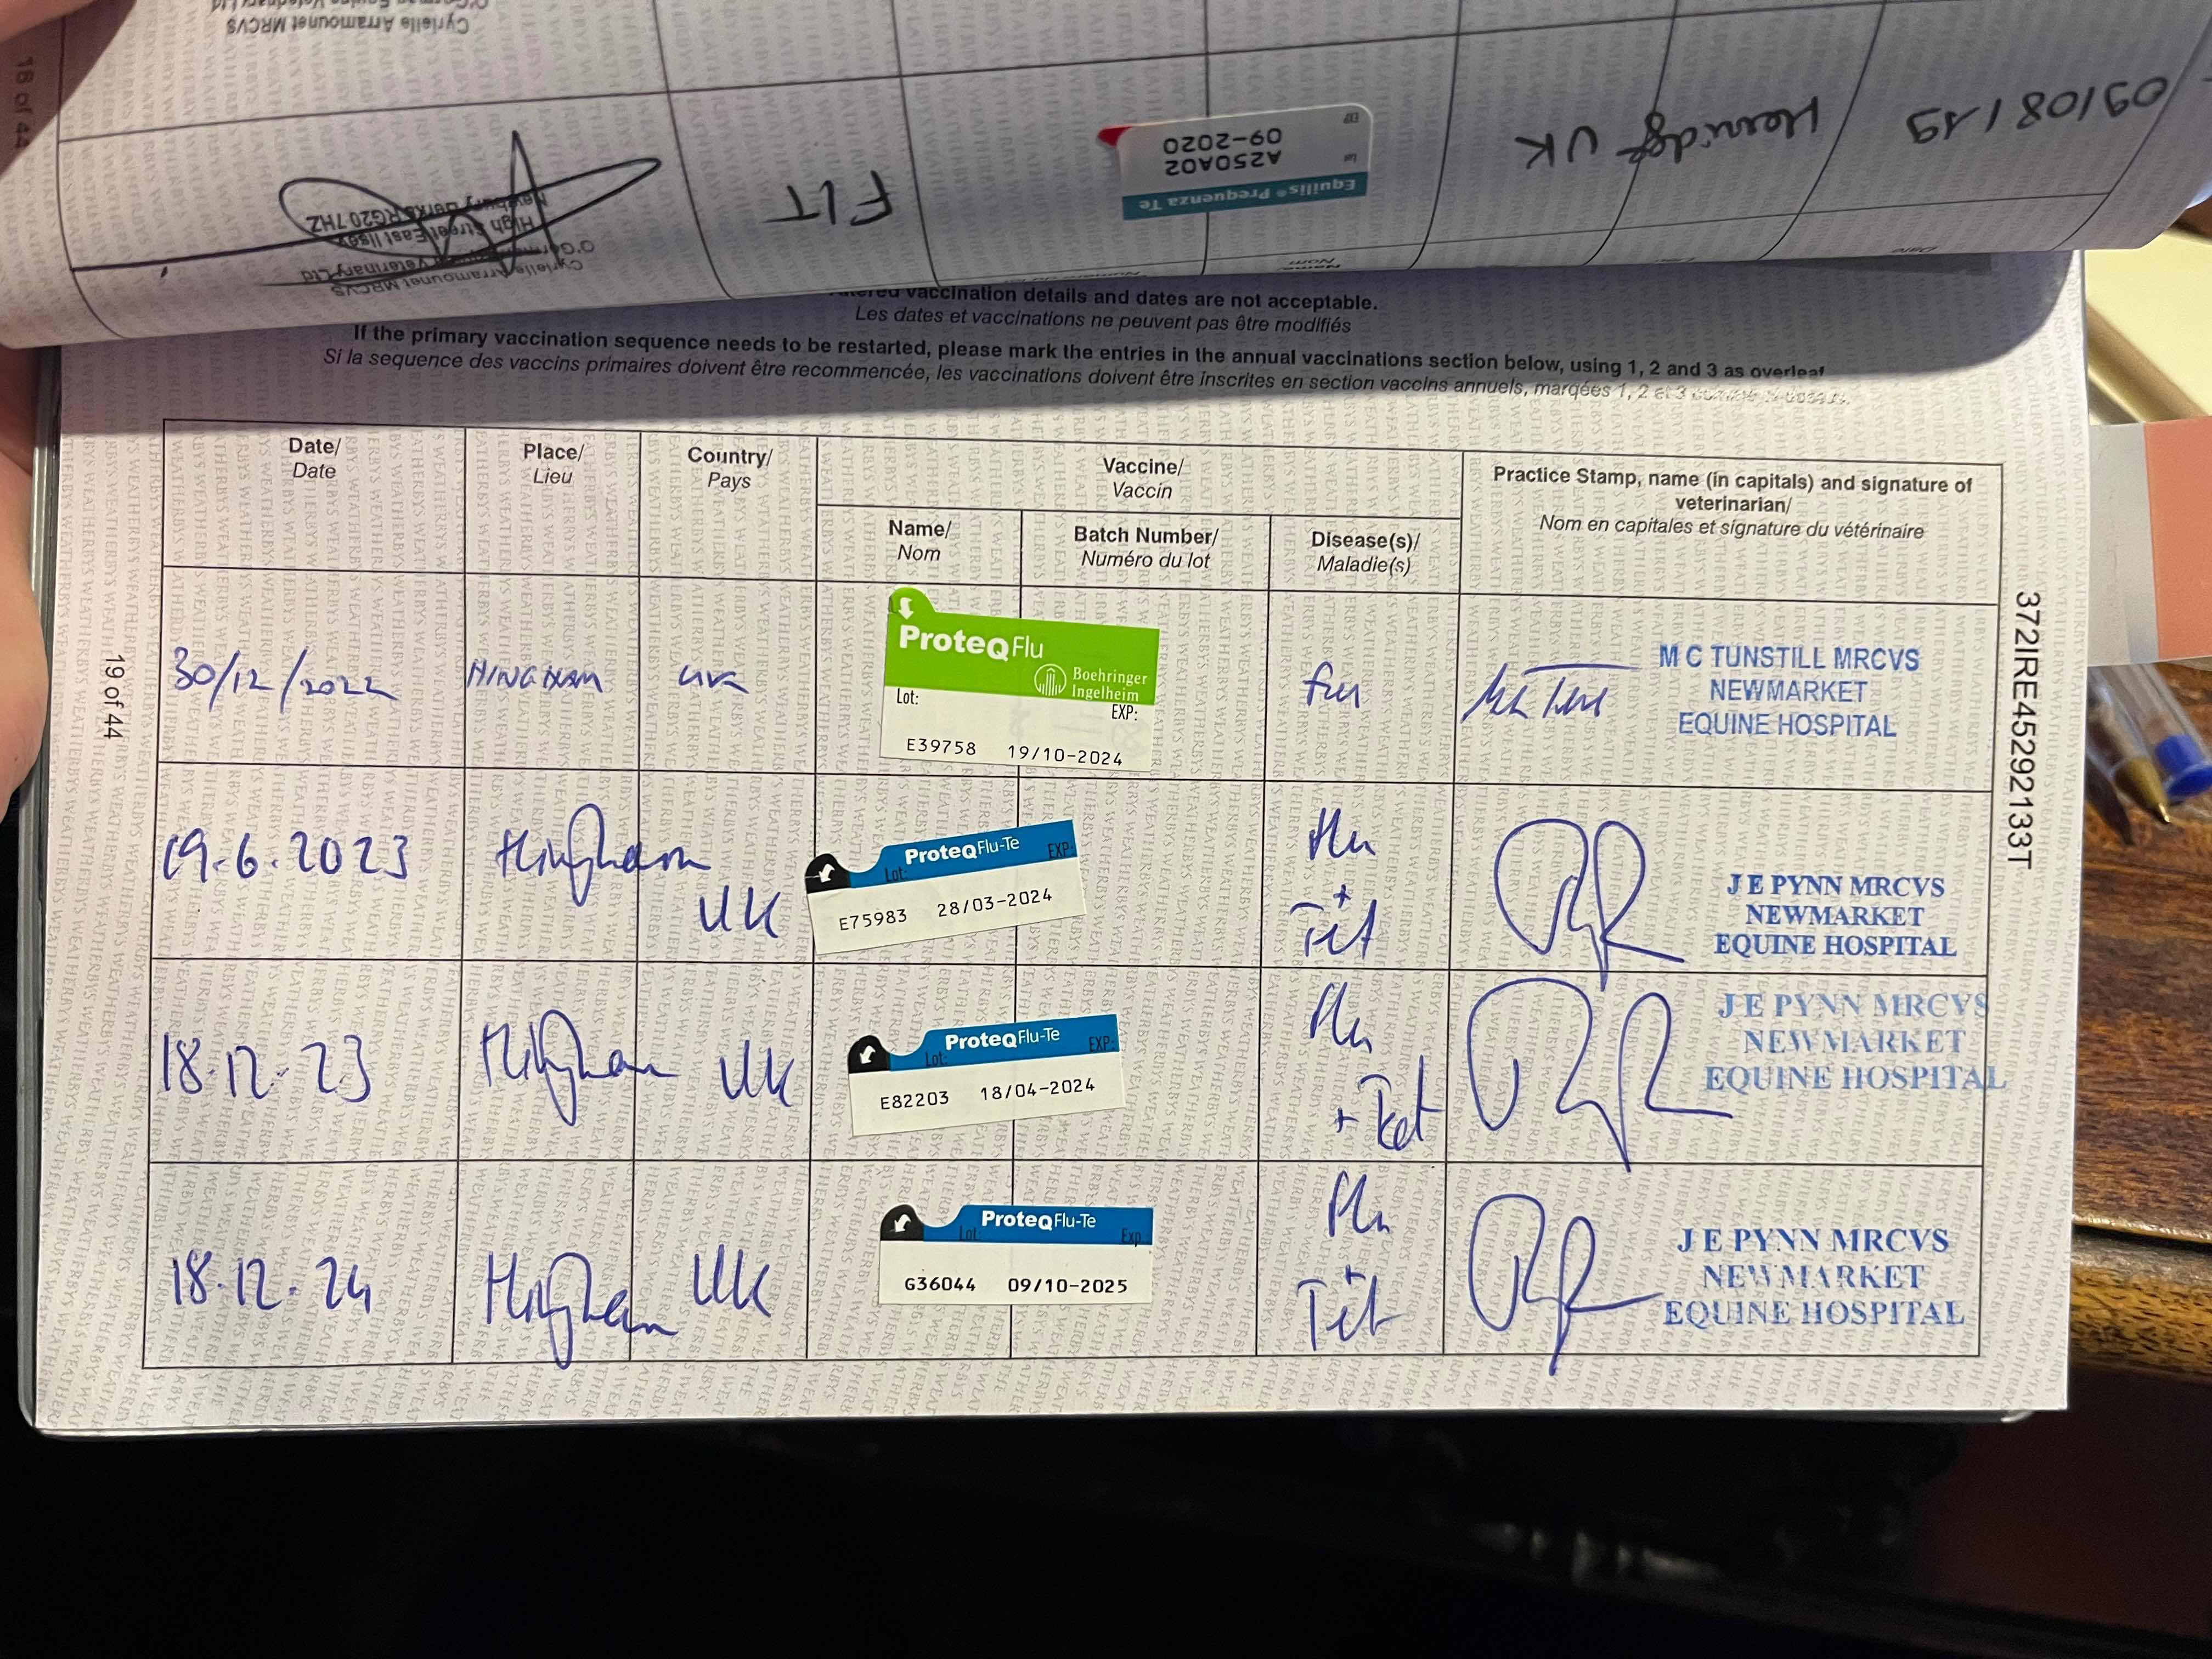 Cyrielle Arramounet MRCVS
18 of 44
09/08/19
UK
Equilis® Prequenza Te
Lot
A250A02
09-2020
FLT
Cyrielle Arramounet MRCVS
Veterinary Ltd
High Street East Ilsley
Newbury Berks RG20 7HZ
vaccination details and dates are not acceptable.
Les dates et vaccinations ne peuvent pas être modifiés
If the primary vaccination sequence needs to be restarted, please mark the entries in the annual vaccinations section below, using 1, 2 and 3 as overleaf
Si la sequence des vaccins primaires doivent être recommencée, les vaccinations doivent être inscrites en section vaccins annuels, marqées 1, 2 et 3
Date/
Date
Place/
Lieu
Country/
Pays
Vaccine/
Vaccin
Name/
Nom
Batch Number/
Numéro du lot
Disease(s)/
Maladie(s)
Practice Stamp, name (in capitals) and signature of
veterinarian/
Nom en capitales et signature du vétérinaire
30/12/2022
HINGHAM
UK
ProteqFlu
Boehringer
Ingelheim
Lot:
EXP:
E39758 19/10-2024
flu
M C TUNSTILL MRCVS
NEWMARKET
EQUINE HOSPITAL
19.6.2023
Hingham
UK
ProteqFlu-Te
Lot:
EXP:
E75983 28/03-2024
Flu
+
Tet
J E PYNN MRCVS
NEWMARKET
EQUINE HOSPITAL
18.12.23
Hingham
UK
ProteqFlu-Te
Lot:
EXP:
E82203 18/04-2024
Flu
+ Tet
J E PYNN MRCVS
NEWMARKET
EQUINE HOSPITAL
18.12.24
Hingham
UK
ProteqFlu-Te
Lot:
Exp
G36044 09/10-2025
Flu
+
Tet
J E PYNN MRCVS
NEWMARKET
EQUINE HOSPITAL
19 of 44
372IRE45292133T